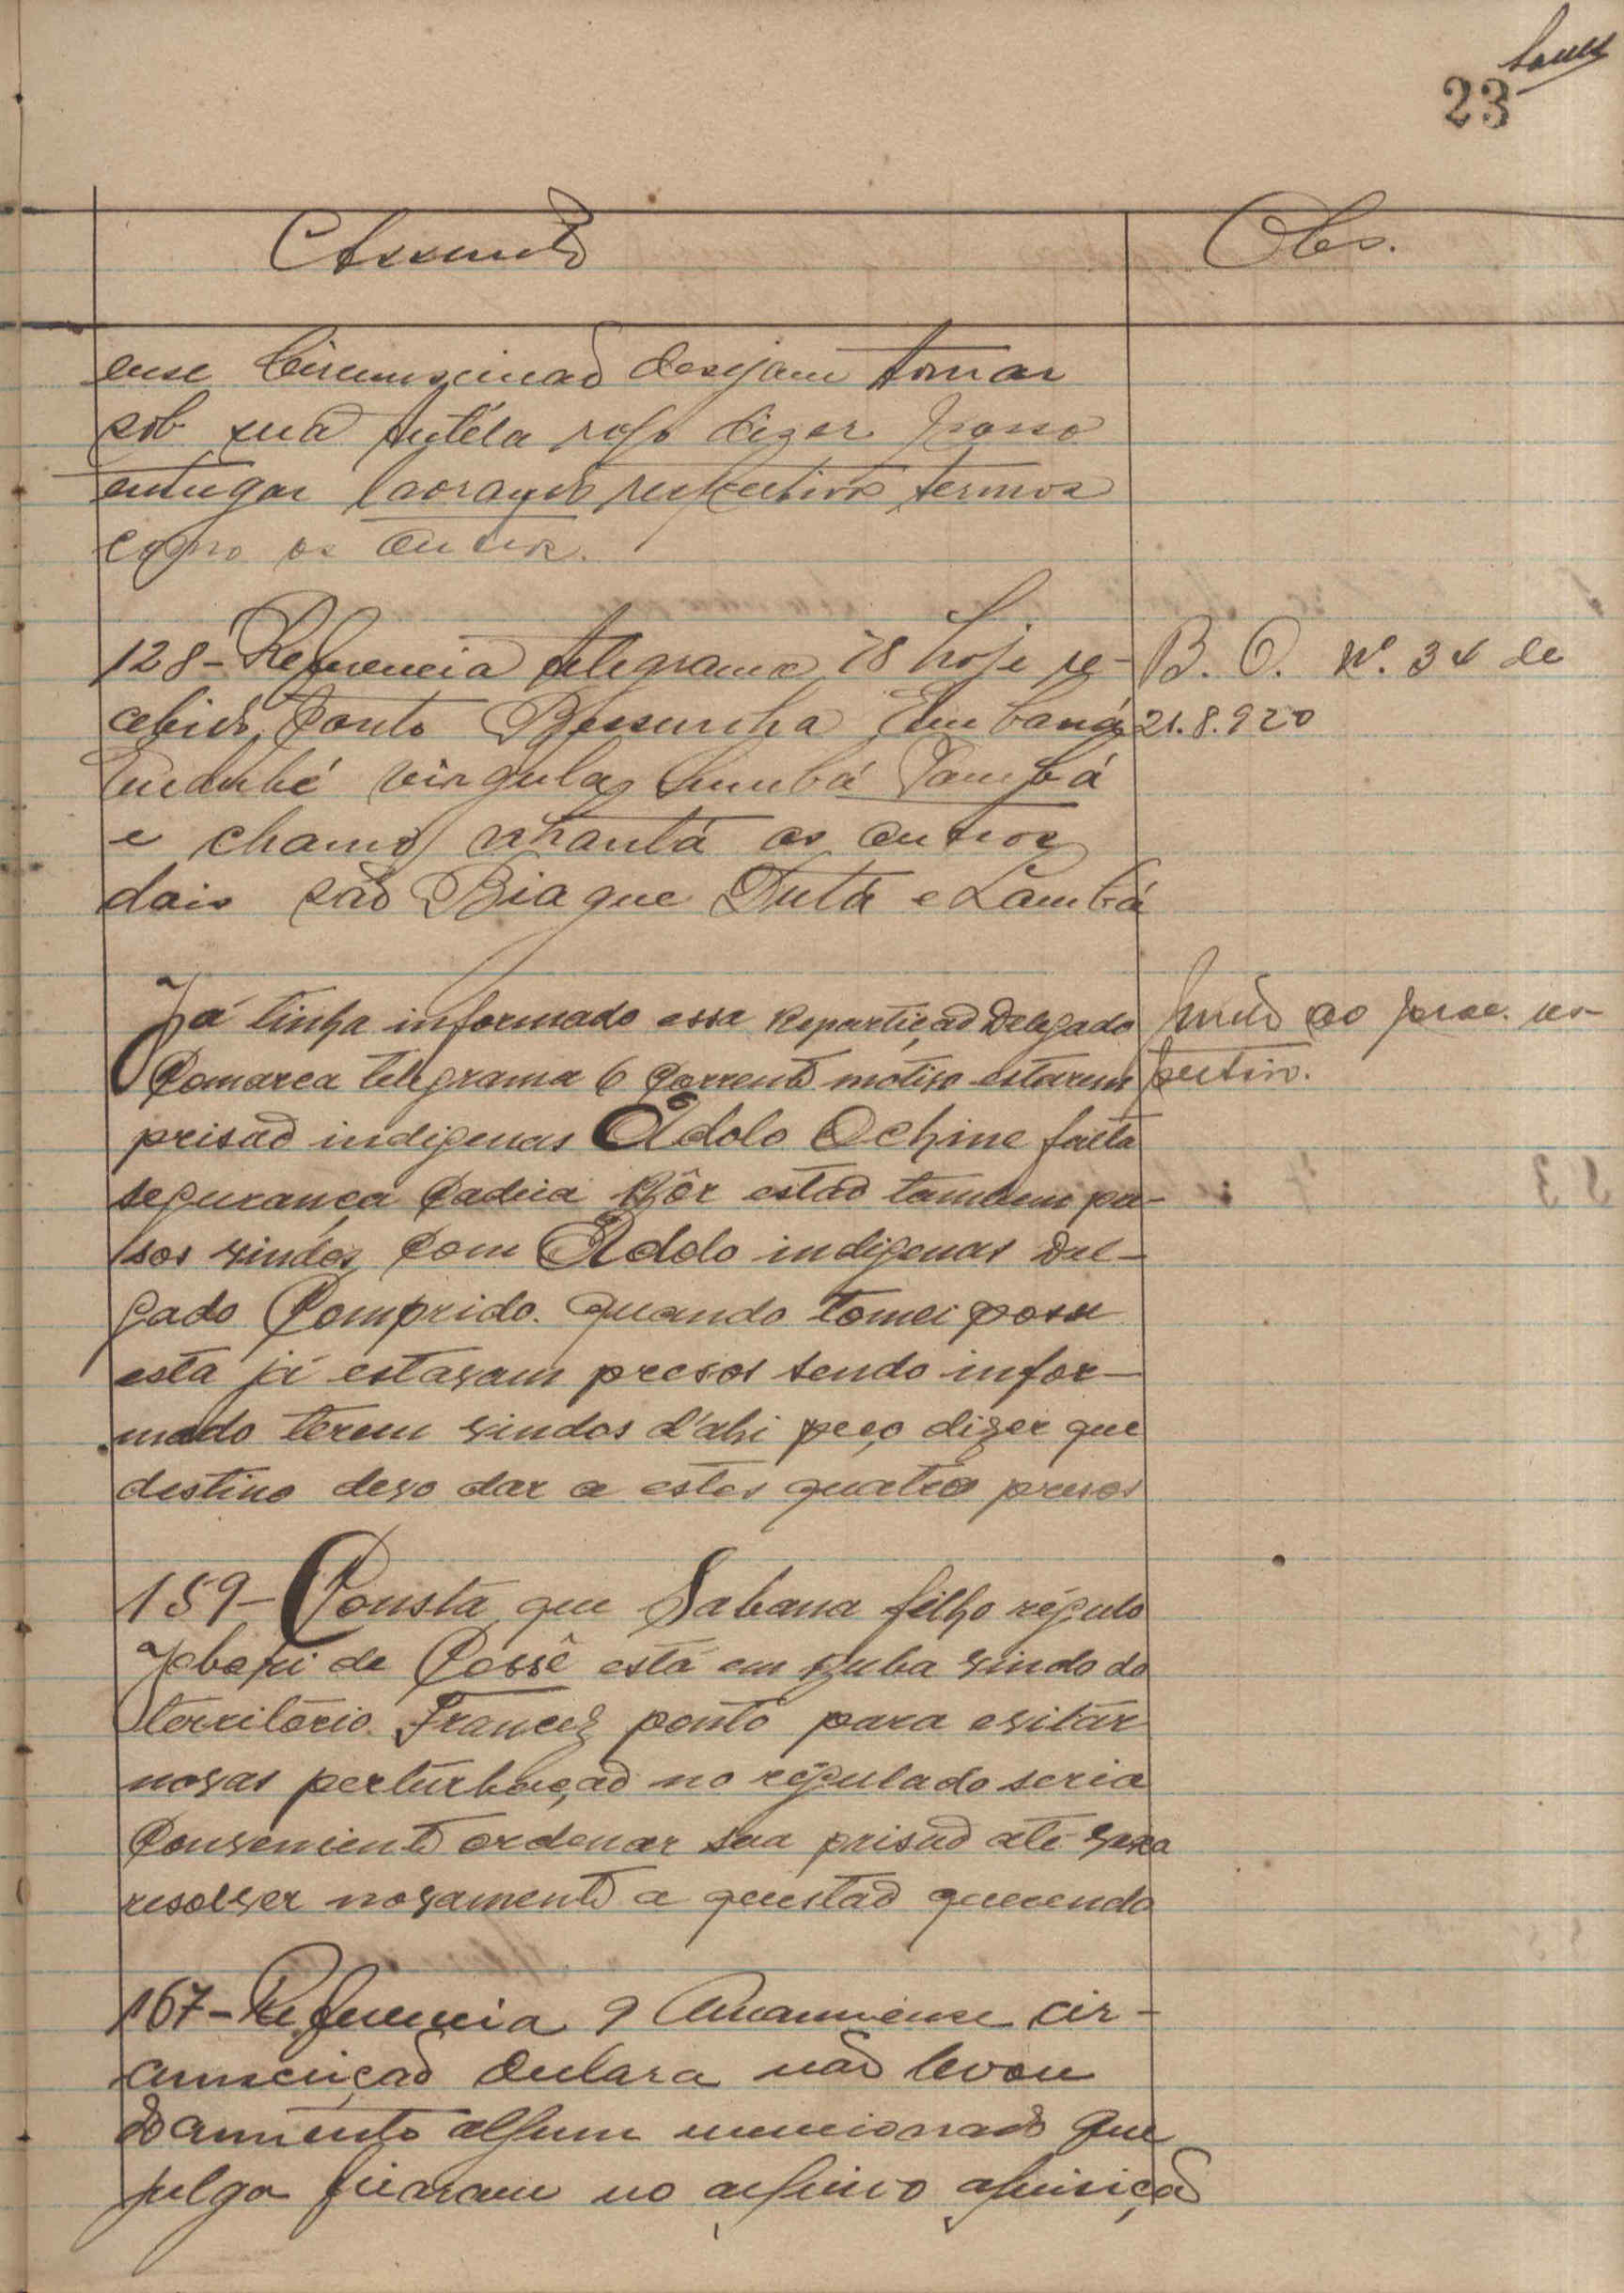 23
Assunto
Obs.
essa circunscrição desejam tomar
sob sua tutéla rogo dizer posso
entregar lavrando respectivos termos
como os outros.
128- Referencia telegrama 78 hoje re-
cebido ponto
vingula
e chamo os outros
dois são Biague e Lambá
B. O. Nº. 34 de
21.8.920
Já tinha informado essa Repartição Delegado
Comarca telegrama 6 corrente motivo estarem
prisão indigenas Adolo Ochine falta
segurança cadeia Bôr estão tambem pre-
sos vindos com Adolo indigenas Del-
gado Comprido. Quando tomei posse
esta já estavam presos sendo infor-
mado terem vindos d'ahi peço dizer que
destino devo dar a estes quatro presos
ao proc. res-
pectivo.
159- Consta que Sabana filho régulo
de Cossê está em vindo do
territorio Francez ponto para evitar
novas perturbação no régulado seria
conveniente ordenar sua prisão até
resolver novamente a questão querendo
167- Referencia 9 Amanuense cir-
cunscrição declara não levou
documento algum mencionado que
julga ficaram no arquivo